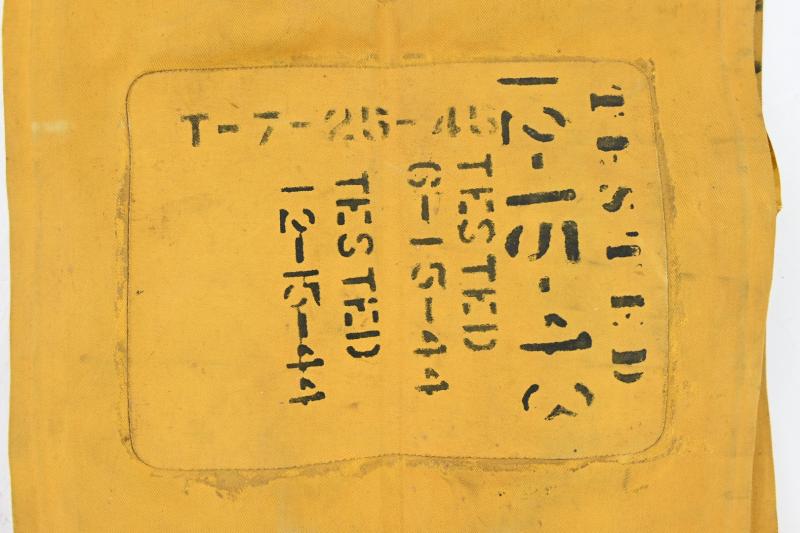 T-7-25-45
TESTED
12-15-43
TESTED
6-15-44
TESTED
12-15-44